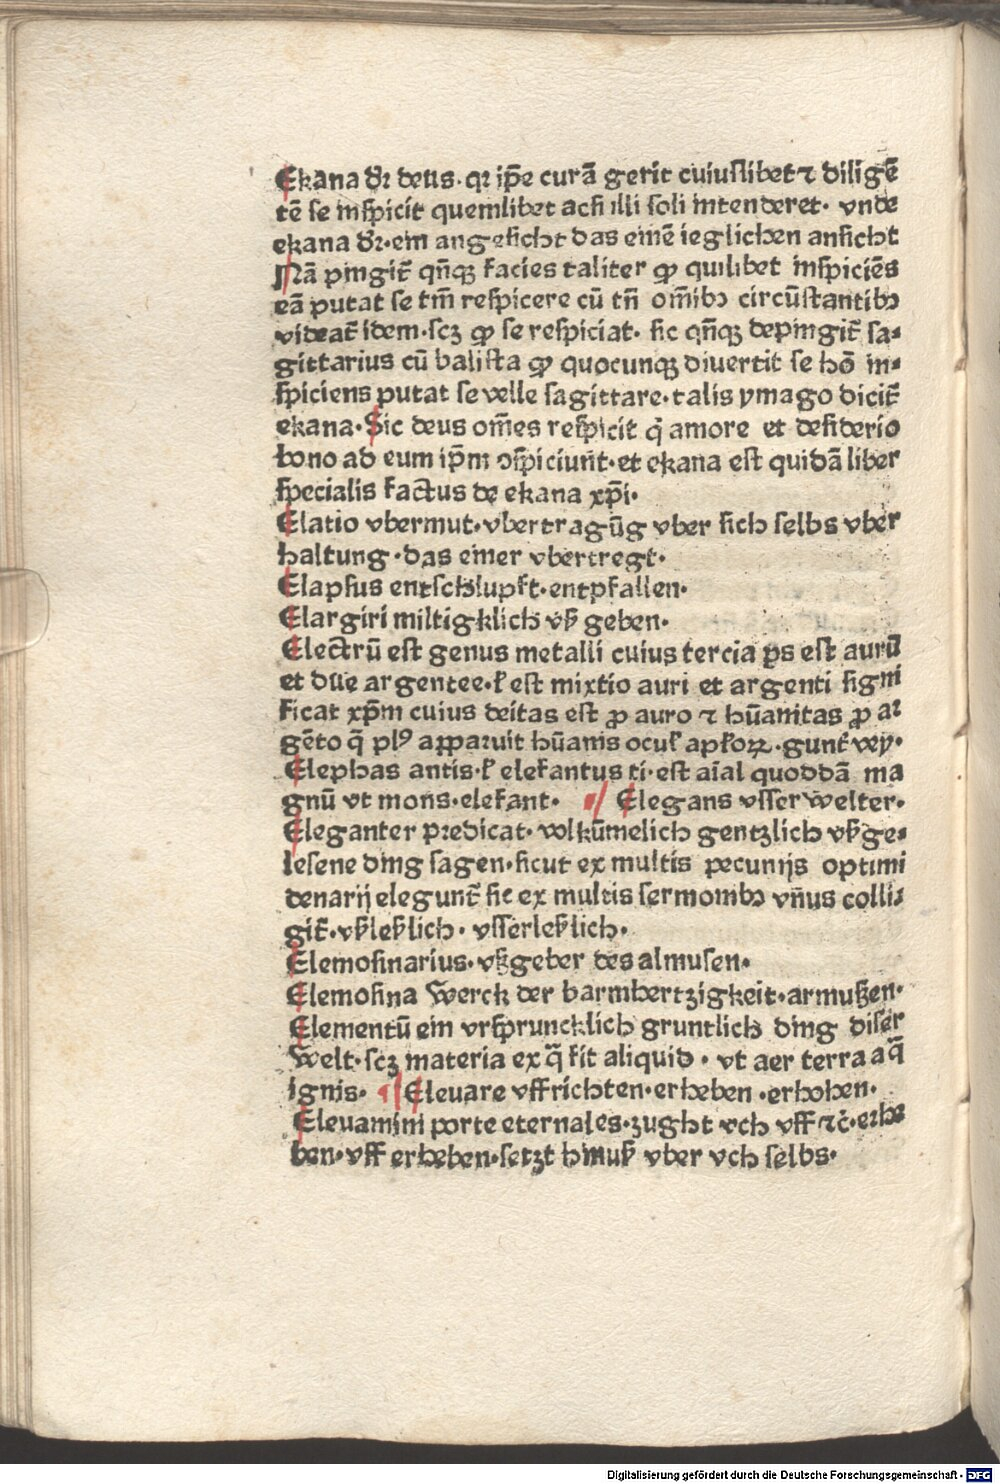 Ekana dr̄ deus. qꝛ ip̄e curā gerit cuiuſlibet ⁊ diligē
tē ſe inſpicit quemlibet acſi illi ſoli intenderet· vnde
ekana dr̄·ein angeſicht das einē ieglichen anſicht
Nā pingit̄ qn̄qꝫ facies taliter ꝙ quilibet inſpiciēs
eā putat ſe tm̄ reſpicere cū tn̄ om̄ibꝫ circūſtantibꝫ
videat̄ idem·ſcꝫ ꝙ ſe reſpiciat· ſic qn̄qꝫ depingit̄ ſa⸗
gittarius cū baliſta ꝙ quocunqꝫ divertit ſe hō in⸗
ſpiciens putat ſe velle ſagittare·talis ymago dicit̄
ekana·Sic deus om̄es reſpicit q̄ amore et deſiderio
bono ad eum ip̄m ꝯſpiciunt̄·et ekana eſt quidā liber
ſpecialis factus de ekana xp̄i·
Elatio vbermut·vbertragūg vber ſich ſelbs vber
haltung·das einer vbertregt·
Elapſus entſchlupft·entpfallen·
Elargiri miltigklich vß geben·
Electrū eſt genus metalli cuius tercia ꝑs eſt aurū
et due argentee·ł eſt mixtio auri et argenti ſigni
ficat xp̄m cuius deitas eſt ꝓ auro ⁊ hūanitas ꝓ ar
gēto q̄ plꝰ apparuit hūanis ocuł apłoꝝ·gunt̄ vey·
Elephas antis·ł elefantus ti·eſt aīal quoddā ma
gnū vt mons·elefant· ¶ Elegans vſſerwelter·
Eleganter predicat· volkūmelich gentzlich vßge⸗
leſene ding ſagen·ſicut ex multis pecunijs optimi
denarij elegunt̄ ſic ex multis ſermonibꝫ vn̄us colli⸗
git̄·vßleßlich· vſſerleßlich·
Elemoſinarius·vßgeber des almuſen·
Elemoſina Werck der barmhertzigkeit·armußen·
Elementū ein vrſpruncklich gruntlich ding diſer
Welt·ſcꝫ materia ex q̄ fit aliquid· vt aer terra aq̄
ignis· ¶ Elevare vffrichten·erheben·erhohen·
Elevamini porte eternales·zught vch vff ⁊c̄·erhe
ben·vff erheben·ſetzt hinuß vber vch ſelbs·
Digitalisierung gefördert durch die Deutsche Forschungsgemeinschaft - DFG